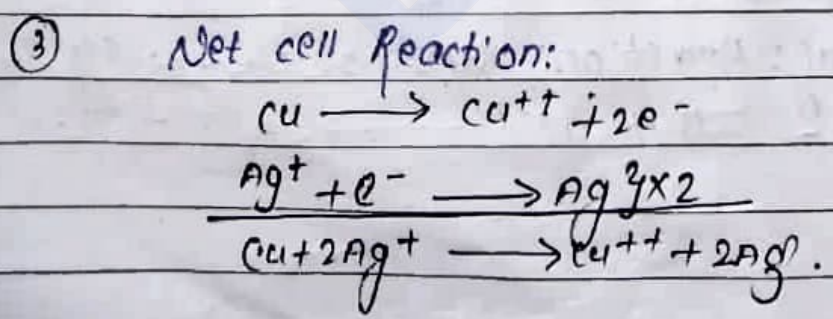 ③ Net cell Reaction:
Cu ⟶ Cu⁺⁺ + 2e⁻
Ag⁺ + e⁻ ⟶ Ag }×2
Cu + 2Ag⁺ ⟶ Cu⁺⁺ + 2Ag.